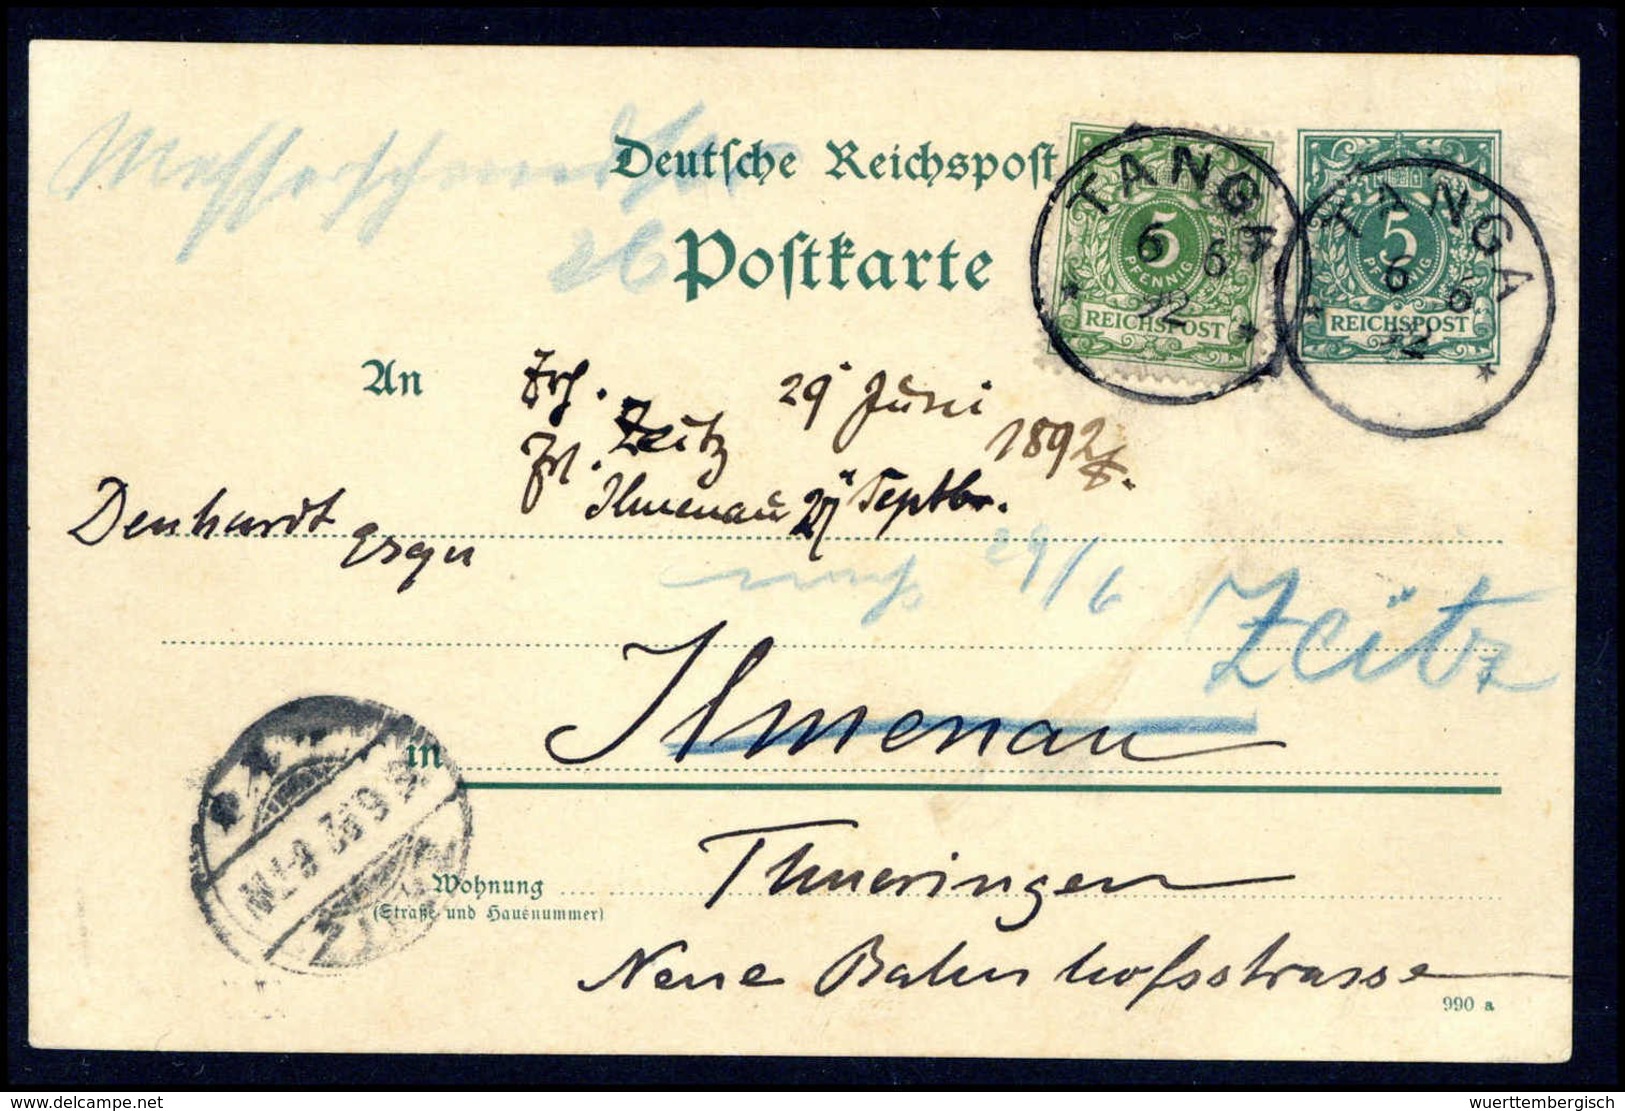 Messerschmidtstr
26
Deutsche Reichspost
Postkarte
TANGA
6 6
92
5
PFENNIG
REICHSPOST
TANGA
6 6
92
5
PFENNIG
REICHSPOST
An
Frh.
Zeitz 29 Juni
1892
Ilmenau 27 Septbr.
Denhardt
29/6
Zeitz
in Ilmenau
Thueringen
Wohnung
(Straße und Hausnummer)
Neue Bahnhofsstrasse
990 a
wuerttembergisch